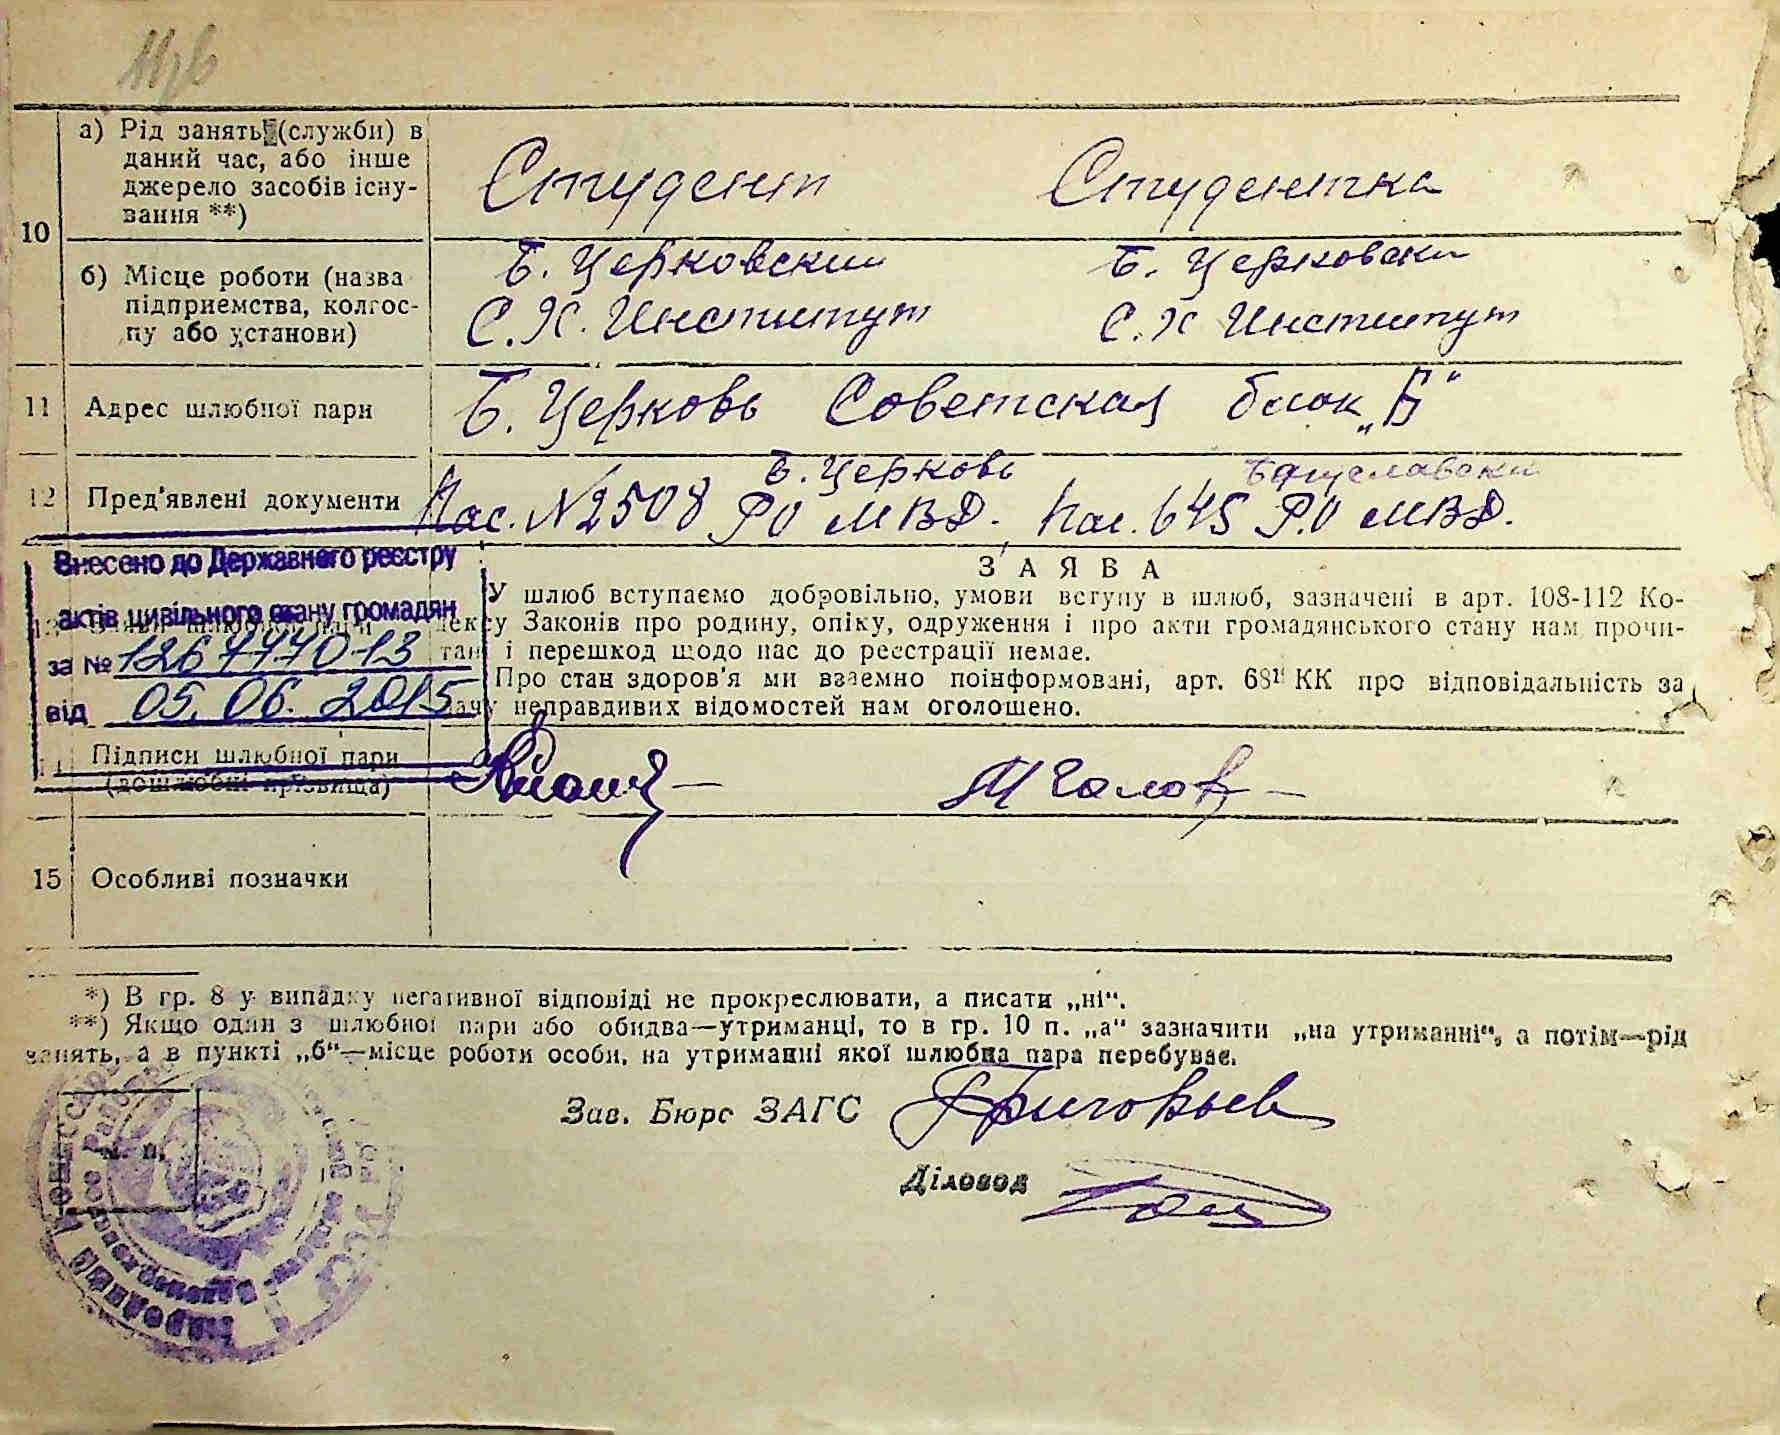 10
а) Рід занять (служби) в
даний час, або інше
джерело засобів існу-
вання **)
Студент
Студентка
б) Місце роботи (назва
підприемства, колгос-
пу або установи)
Б. Церковский
С.Х. Институт
Б. Церковски
С.Х Институт
11
Адрес шлюбної пари
Б. Церковь Советская блок „Б"
12
Пред'явлені документи
Б. Церковь
Пас. №2508 РО МВД. Пас. 645 Р.О МВД.
Внесено до Державного реєстру
актів цивільного стану громадян
за № 126777013
від 05. 06. 2015
ЗАЯВА
У шлюб вступаємо добровільно, умови вступу в шлюб, зазначені в арт. 108-112 Ко-
дексу Законів про родину, опіку, одруження і про акти громадянського стану нам прочи-
тані і перешкод щодо нас до реєстрації немає.
Про стан здоров'я ми взаємно поінформовані, арт. 68¹ КК про відповідальність за
дачу неправдивих відомостей нам оголошено.
Підписи шлюбної пари
(дошлюбні прізвища)
15
Особливі позначки
*) В гр. 8 у випадку негативної відповіді не прокреслювати, а писати „ні".
**) Якщо один з шлюбної пари або обидва—утриманці, то в гр. 10 п. „а" зазначити „на утриманні", а потім—рід
занять, а в пункті „б"—місце роботи особи, на утриманні якої шлюбна пара перебуває.
Зав. Бюро ЗАГС Григорьев
Діловод
м. п.